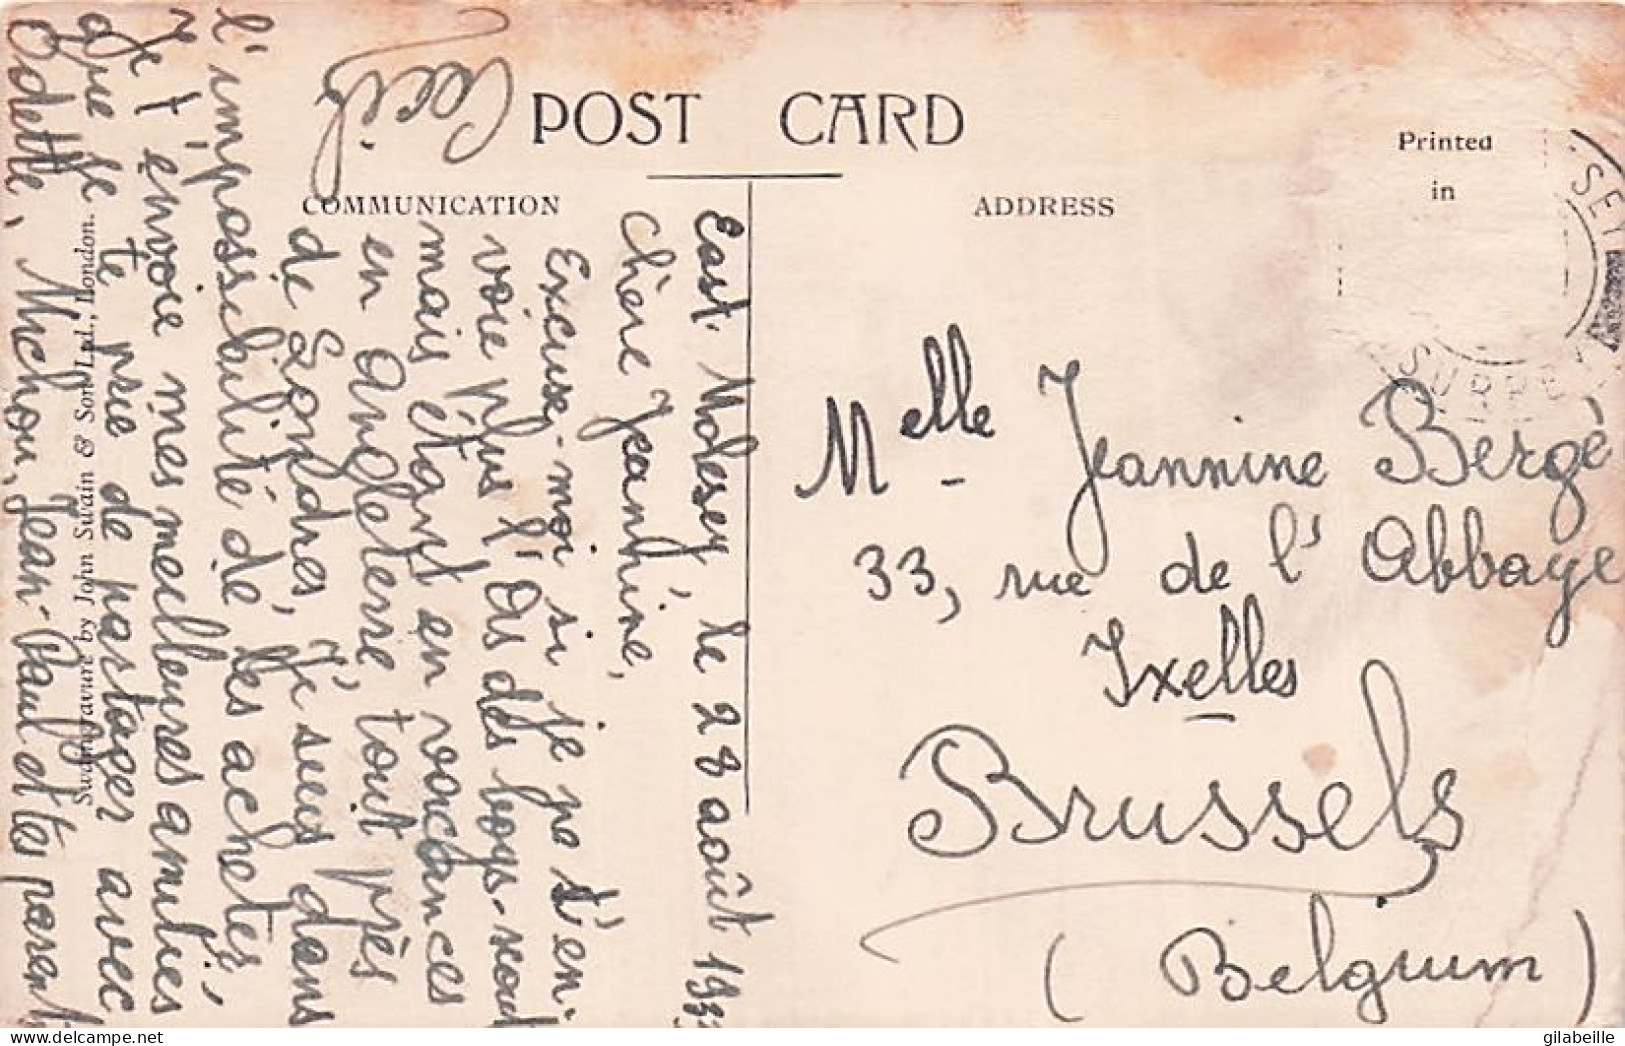 POST CARD
COMMUNICATION
ADDRESS
Printed
in
East Molesey, le 28 août
Chère Jeannine,
Excuse-moi si je ne t'en-
voie plus l'Os des boys-scout
mais étant en vacances
en Angleterre, tout près
de Londres, je suis dans
l'impossibilité de les acheter.
Je t'envoie mes meilleures amitiés
que je te prie de partager avec
Odette, Michou, Jean-Paul et tes parent
Cecil
Swaingravure by John Swain & Son Ltd., London.
Melle Jeannine Bergé
33, rue de l'Abbaye
Ixelles
Brussels
(Belgium)
SURREY
gilabeille